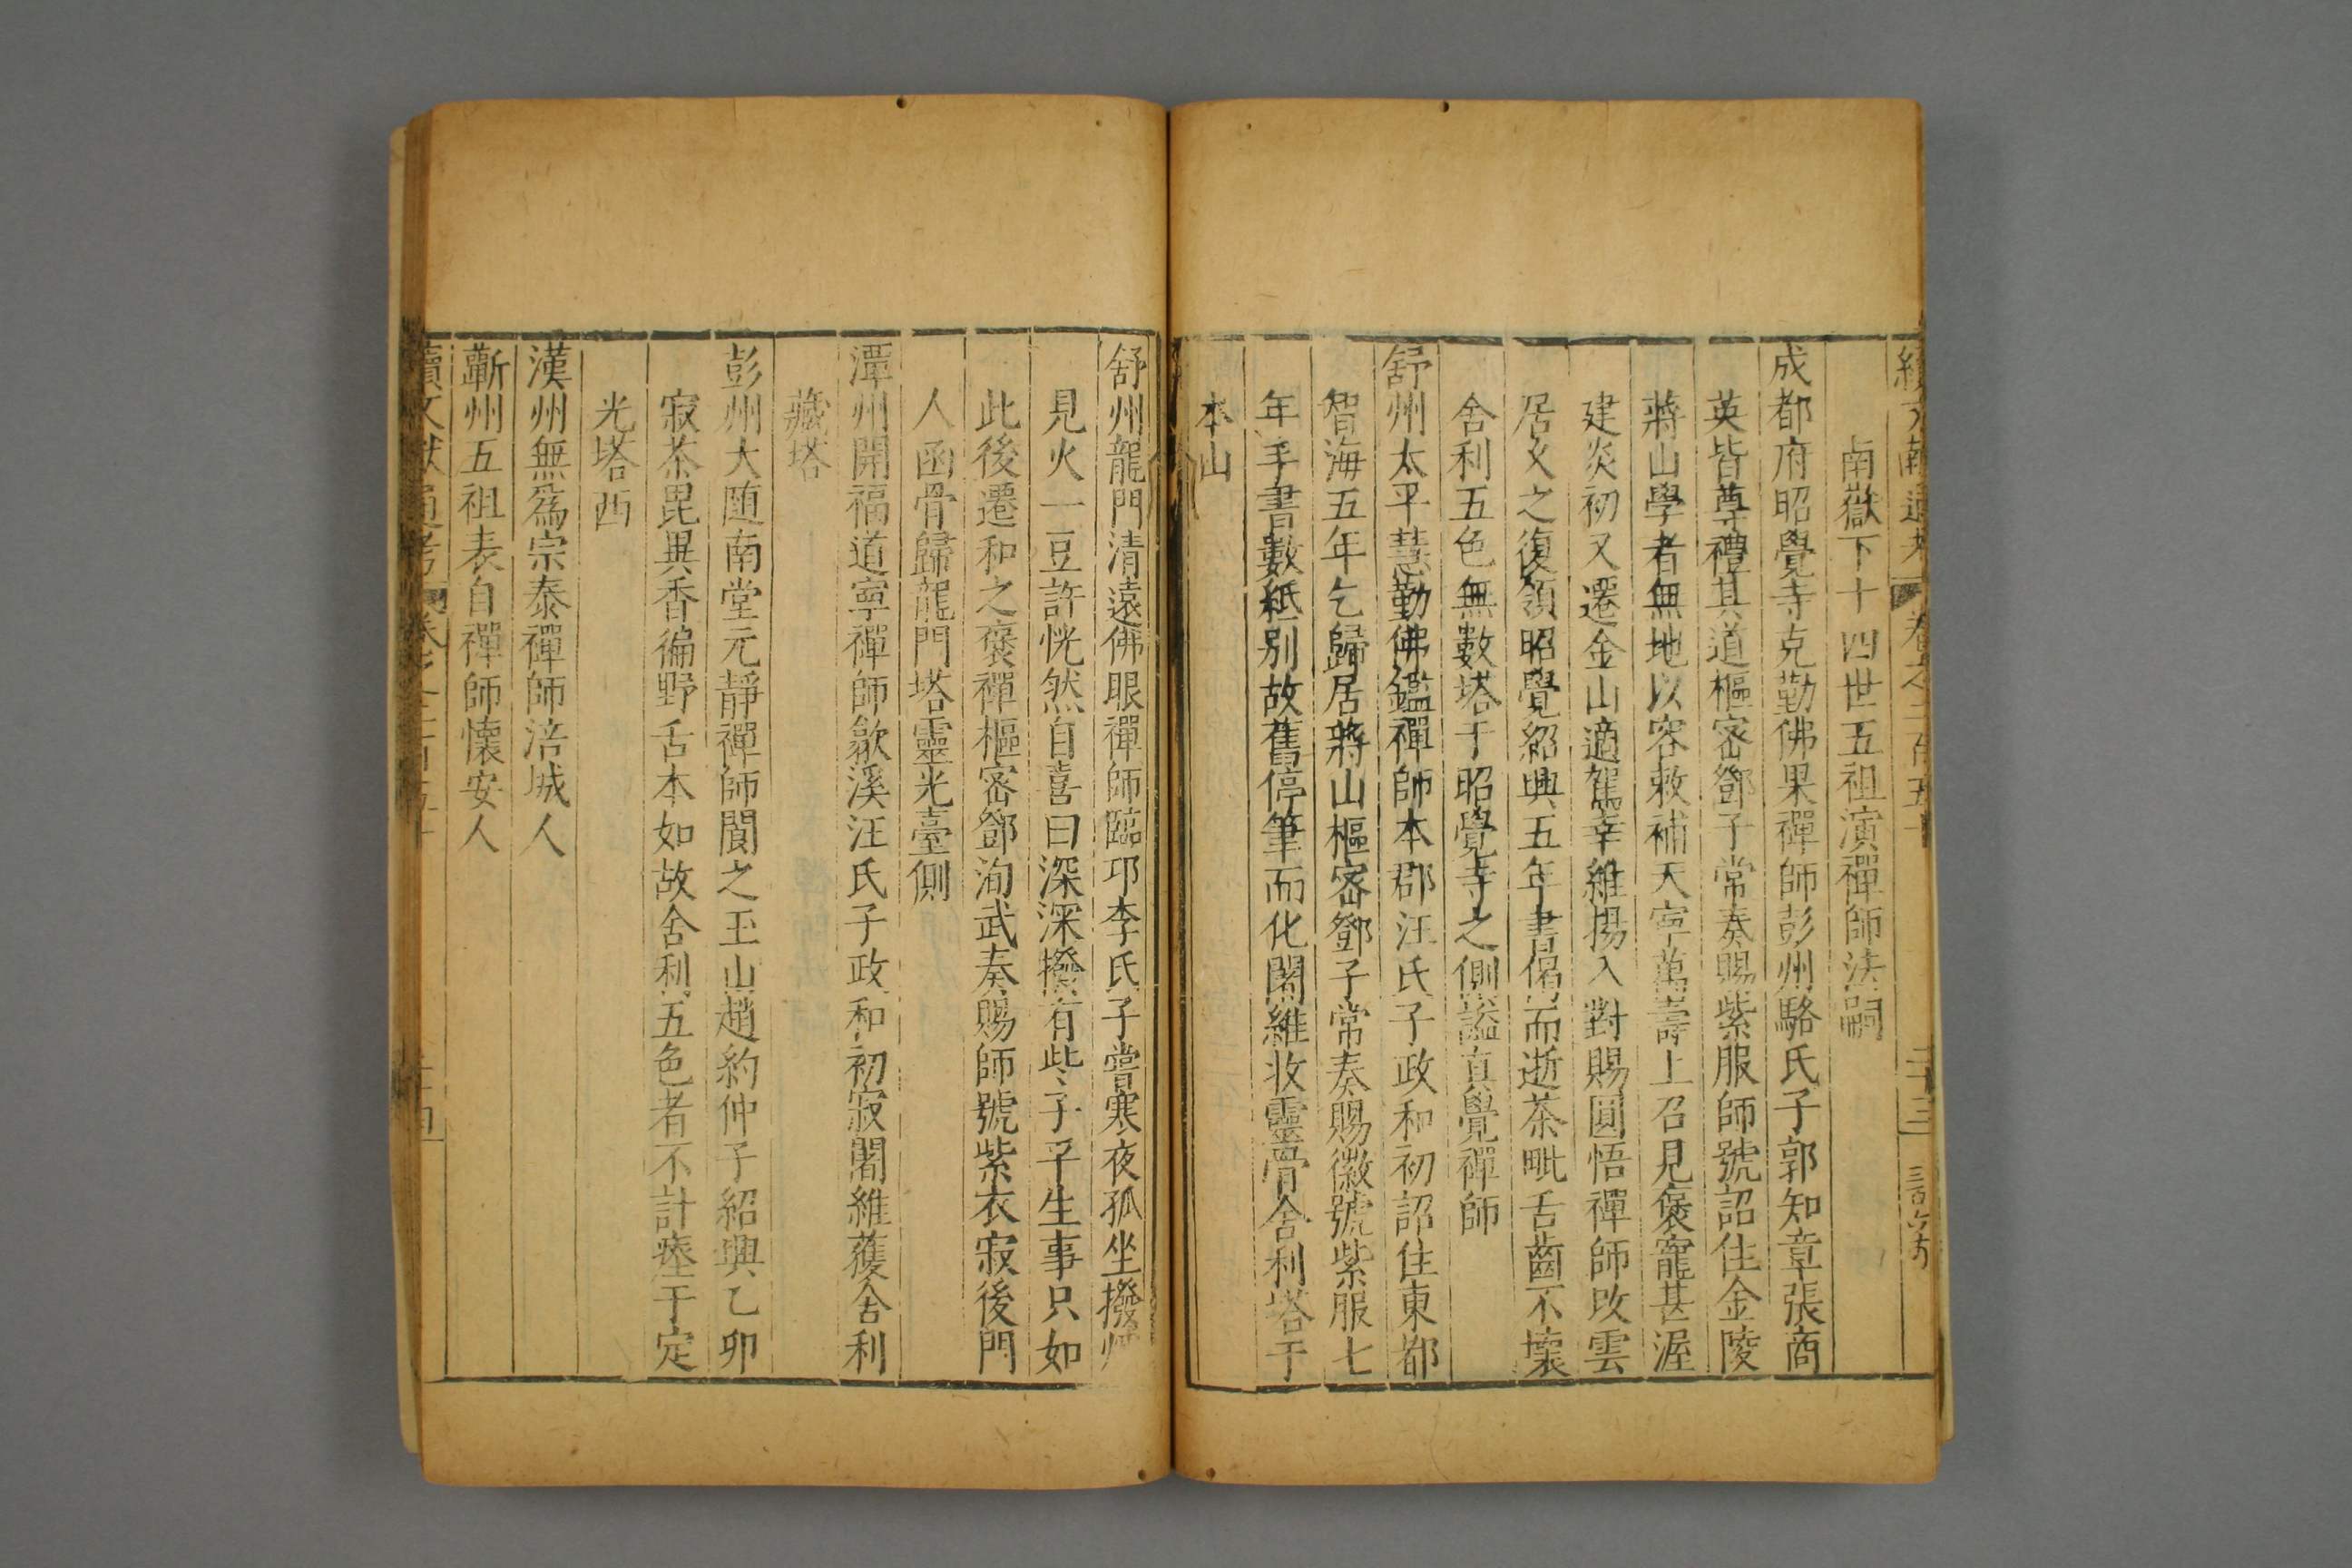 南嶽下十四世五祖演禪師法嗣
成都府昭覺寺克勤佛果禪師彭州駱氏子郭知章張商
英皆尊禮其道樞密鄧子常奏賜紫服師號詔住金陵
蔣山學者無地以容敕補天寧萬壽上召見褒寵甚渥
建炎初又遷金山適駕幸維揚入對賜圓悟禪師改雲
居久之復領昭覺紹興五年書偈而逝茶毗舌齒不壞
舍利五色無數塔于昭覺寺之側謚真覺禪師
舒州太平慧勤佛鑑禪師本郡汪氏子政和初詔住東都
智海五年乞歸居蔣山樞密鄧子常奏賜徽號紫服七
年手書數紙別故舊停筆而化闍維收靈骨舍利塔于
本山
舒州龍門清遠佛眼禪師臨邛李氏子嘗寒夜孤坐撥爐
見火一豆許恍然自喜曰深深撥有些子平生事只如
此後遷和之褒禪樞密鄧洵武奏賜師號紫衣寂後門
人函骨歸龍門塔靈光臺側
潭州開福道寧禪師歙溪汪氏子政和初寂闍維獲舍利
藏塔
彭州大随南堂元靜禪師閬之玉山趙約仲子紹興乙卯
寂茶毘異香徧野舌本如故舍利五色者不計瘞于定
光塔西
漢州無爲宗泰禪師涪城人
蘄州五祖表自禪師懷安人